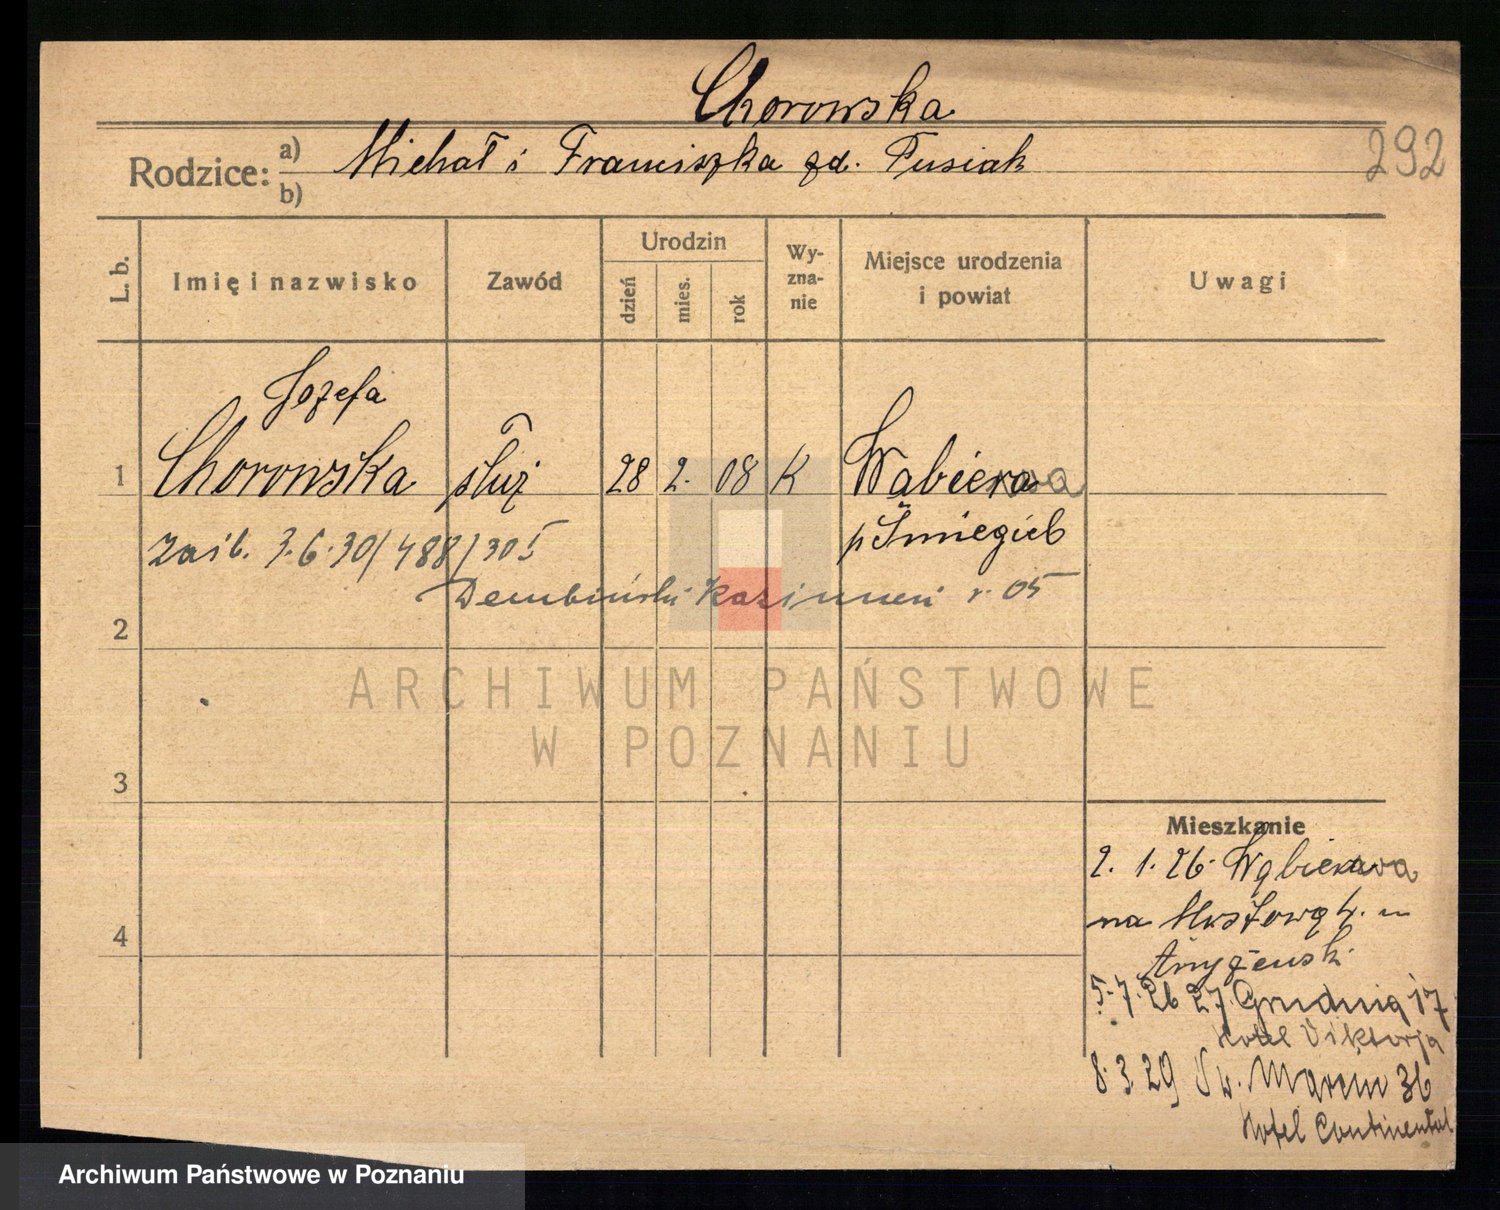 Chorowska
292
Rodzice: a) Michał i Franciszka zd. Pusiak
b)
L. b. Imię i nazwisko Zawód Urodzin dzień mies. rok Wy-zna-nie Miejsce urodzenia i powiat Uwagi
Józefa
1 Chorowska służ 28 2. 08 K Wąbierwa
p Śmiegiel
3.6.30/488/305
Dembiński Kazimierz r. 05
2
3
4
ARCHIWUM PAŃSTWOWE
W POZNANIU
Mieszkanie
2. 1. 26.
na
5.7.26 27 Grudnia 17
Hotel Viktorja
8.3.29 Św. Marcin 36
Hotel Continental
Archiwum Państwowe w Poznaniu